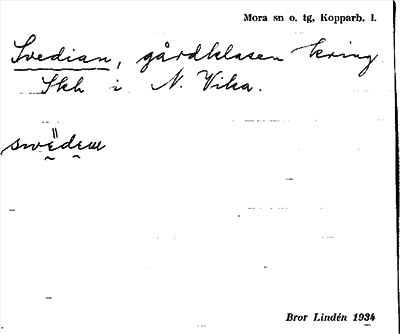 Mora sn o. tg, Kopparb. l.
Svedian, gårdklasen kring
Skh i N. Vika.
Bror Lindén 1934